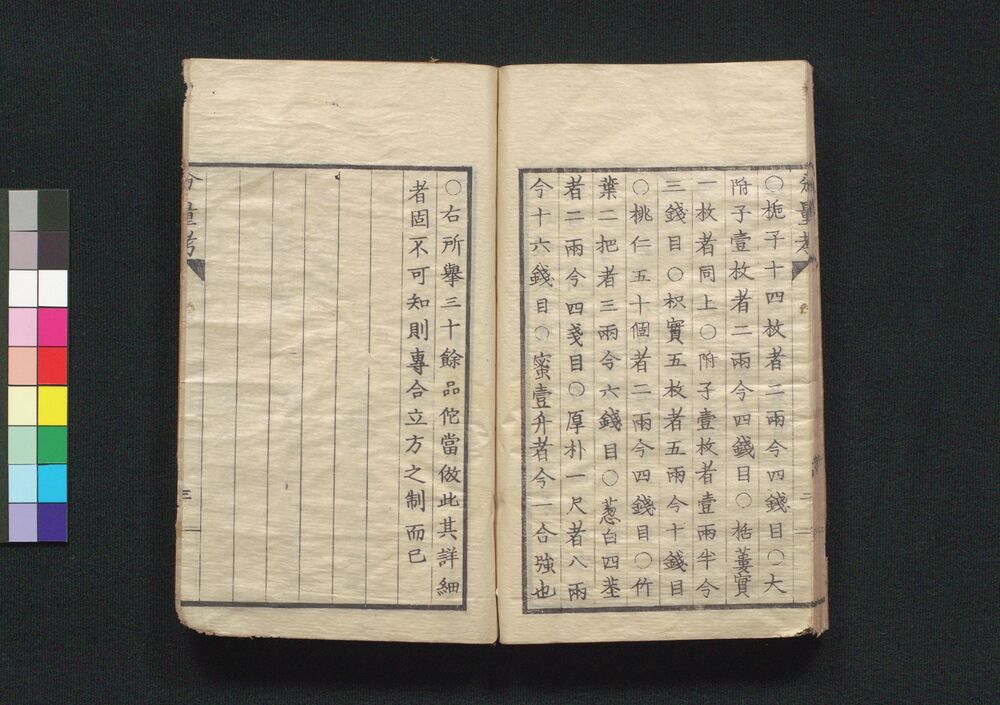 分量考
二
○栀子十四枚者二兩今四錢目○大
附子壹枚者二兩今四錢目○栝蔞實
一枚者同上○附子壹枚者壹兩半今
三錢目○枳實五枚者五兩今十錢目
○桃仁五十個者二兩今四錢目○竹
葉二把者三兩今六錢目○葱白四莖
者二兩今四戔目○厚朴一尺者八兩
今十六錢目○蜜壹升者今一合強也
○右所擧三十餘品佗當倣此其詳細
者固不可知則專合立方之制而已
分量考
三